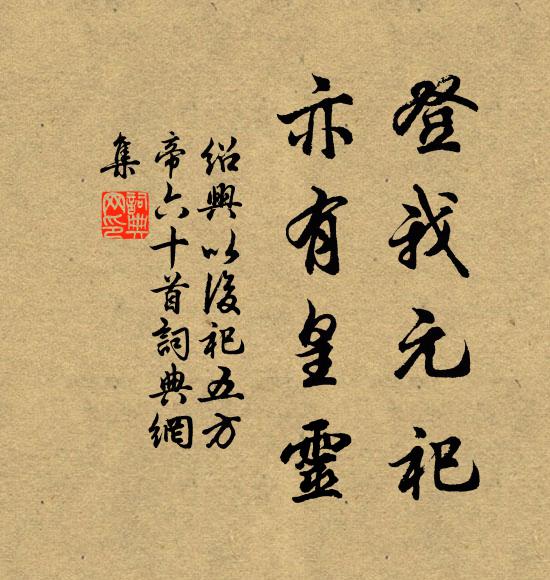 登我元祀
亦有皇靈
紹興以後祀五方
帝六十首詞典網
集
詞典網印